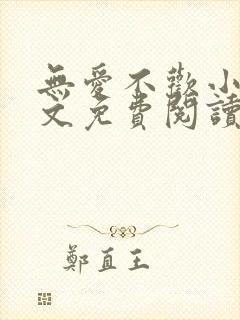 無愛不歡小
文免費閱讀
鄭直王